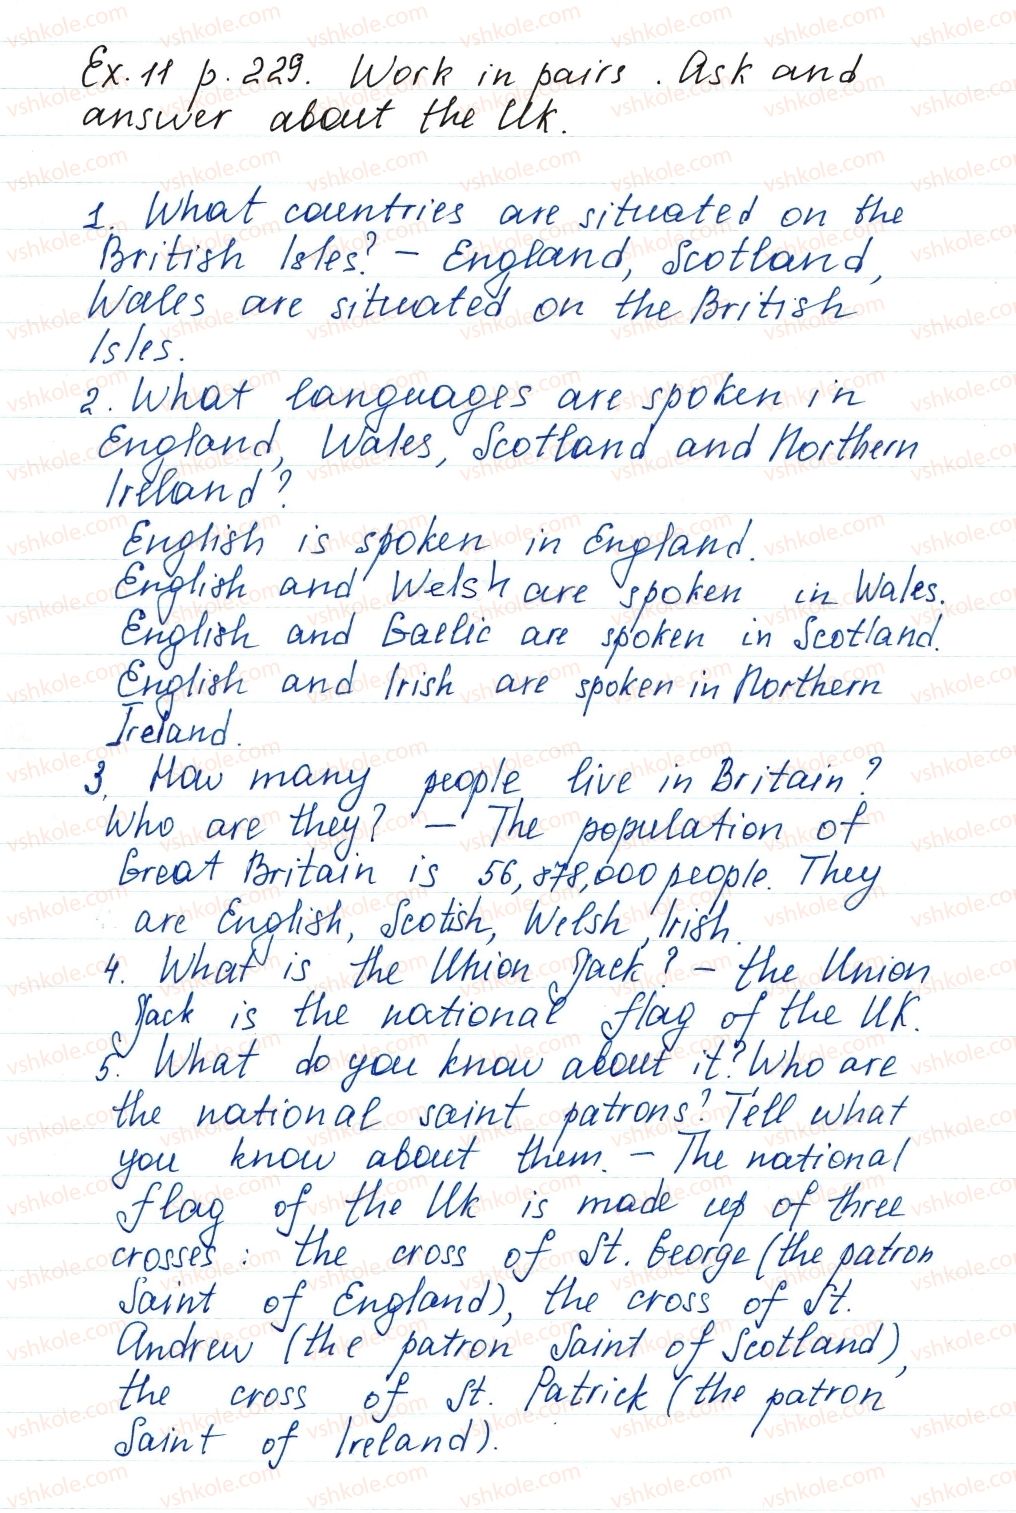 Ex. 11 p. 229. Work in pairs. Ask and
answer about the UK.
1. What countries are situated on the
British Isles? – England, Scotland,
Wales are situated on the British
Isles.
2. What languages are spoken in
England, Wales, Scotland and Northern
Ireland?
English is spoken in England.
English and Welsh are spoken in Wales.
English and Gaelic are spoken in Scotland.
English and Irish are spoken in Northern
Ireland.
3. How many people live in Britain?
Who are they? – The population of
Great Britain is 56,878,000 people. They
are English, Scotish, Welsh, Irish.
4. What is the Union Jack? – the Union
Jack is the national flag of the UK.
5. What do you know about it? Who are
the national saint patrons? Tell what
you know about them. – The national
flag of the Uk is made up of three
crosses: the cross of St. George (the patron
Saint of England), the cross of St.
Andrew (the patron Saint of Scotland),
the cross of St. Patrick (the patron
Saint of Ireland).
vshkole.com